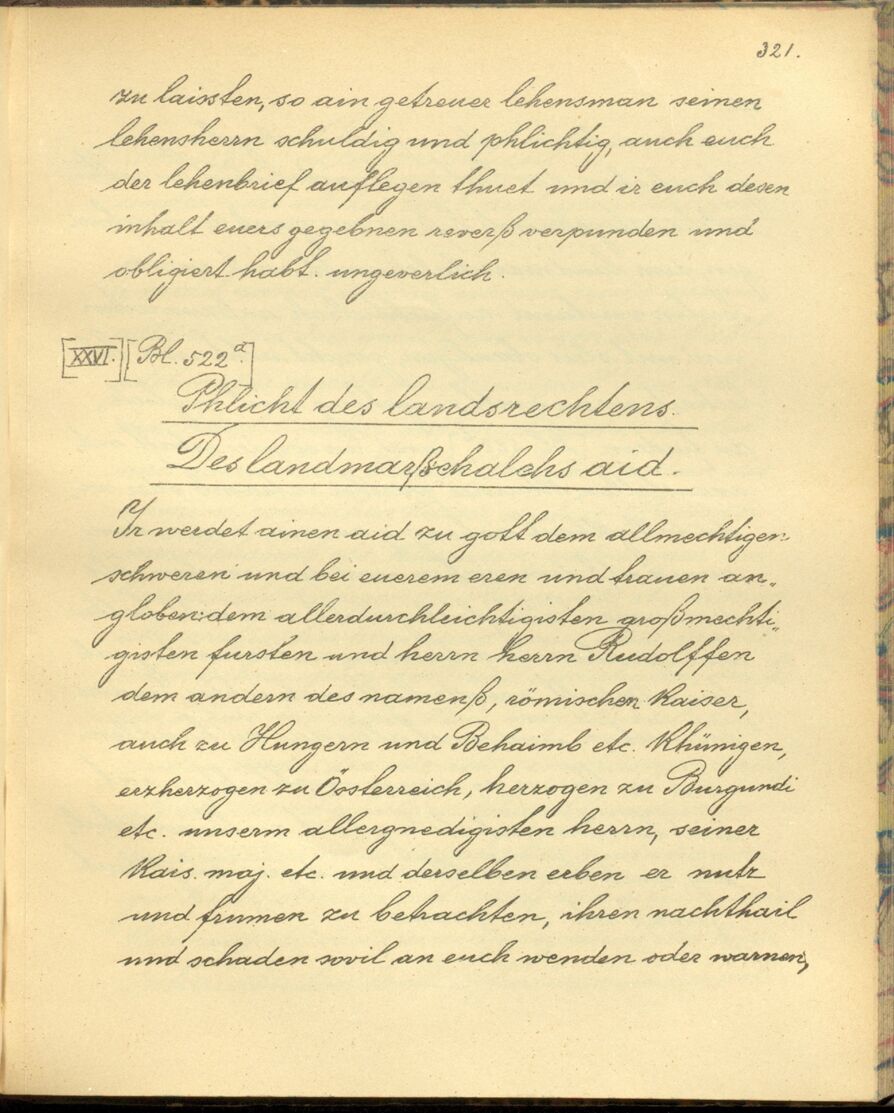 321.
zu laissten, so ain getreuer lehensman seinen
lehensherrn schuldig und phlichtig, auch euch
der lehenbrief auflegen thuet und ir euch desen
inhalt euers gegebnen reverß verpunden und
obligiert habt. ungeverlich.
[XXVI.] [Bl. 522a.]
Phlicht des landsrechtens.
Des landmarßchalchs aid.
Ir werdet ainen aid zu gott dem allmechtigen
schweren und bei euerem eren und trauen an„
globen: dem allerdurchleichtigisten großmechti„
gisten fursten und herrn herrn Rudolffen
dem andern des namenß, römischen Kaiser,
auch zu Hungern und Behaimb etc. Khünigen,
erzherzogen zu Össterreich, herzogen zu Burgundi
etc. unserm allergnedigisten herrn, seiner
Kais. maj. etc. und derselben erben er nutz
und frumen zu betrachten, ihren nachthail
und schaden sovil an euch wenden oder warnen,